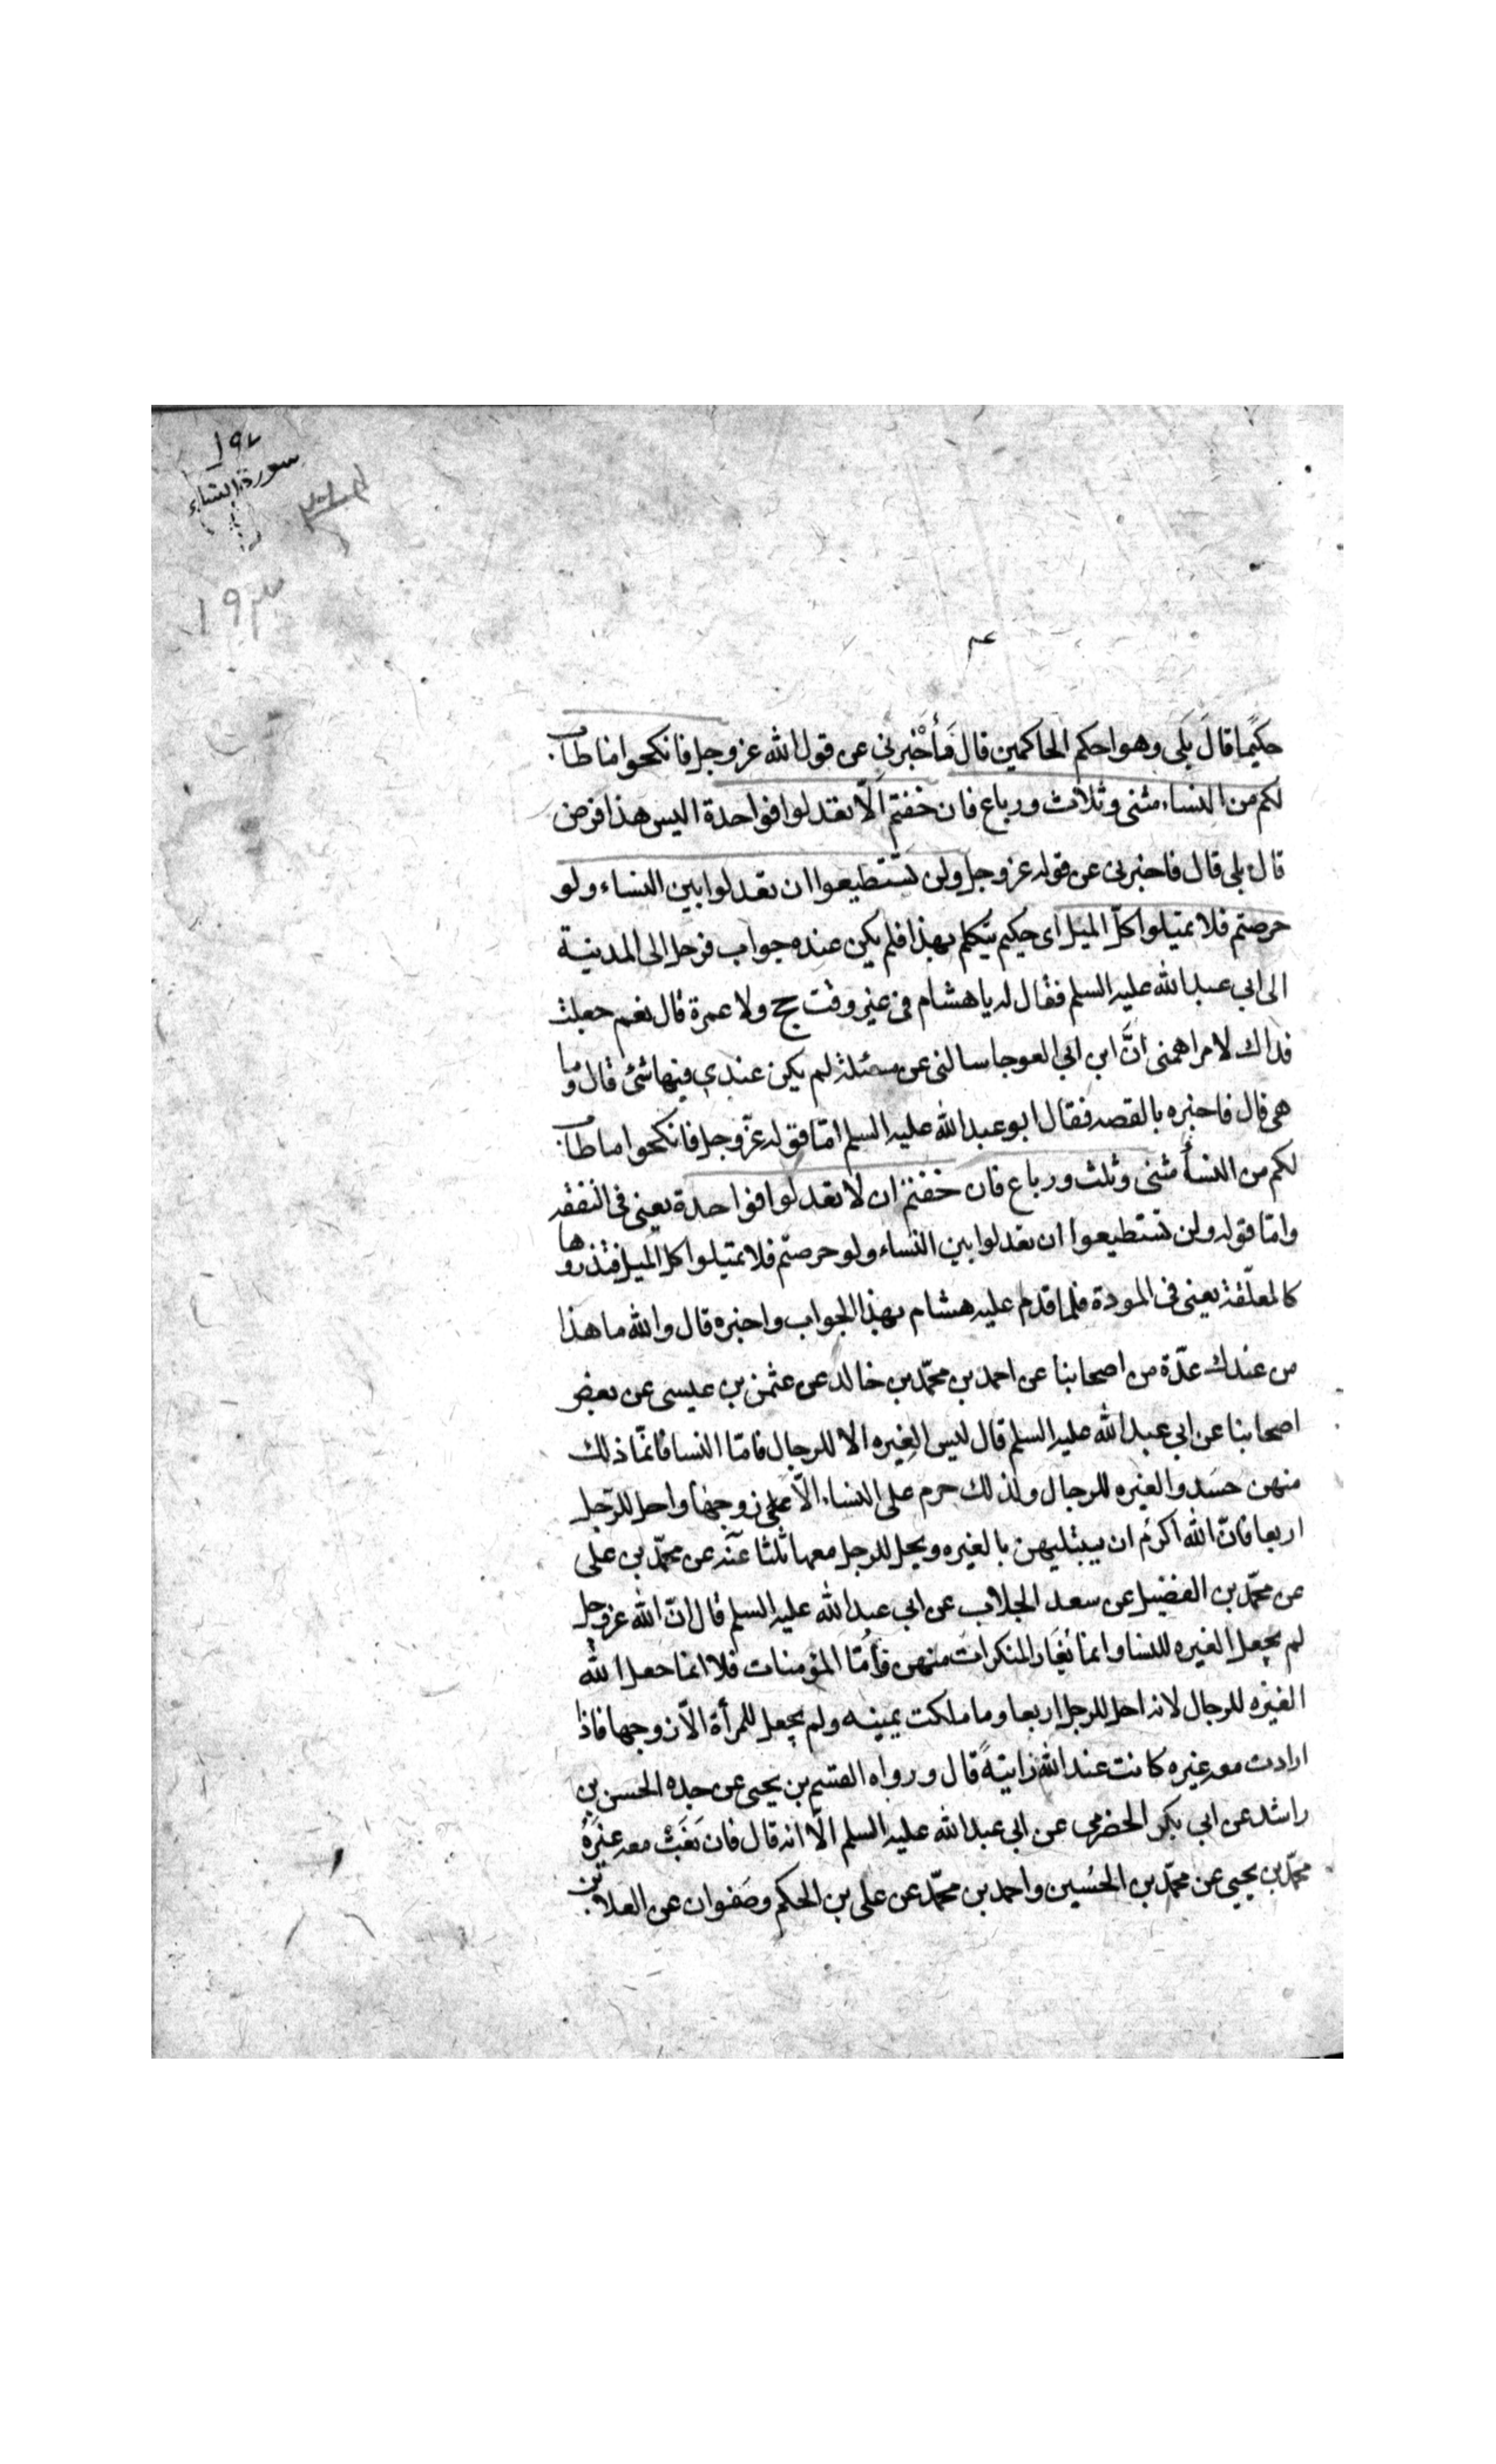 ١٩٢
سورة النساء
١٩٣
حكيما قال بلى وهو احكم الحاكمين قال فأخبرنى عن قول الله عز وجل فانكحوا ما طاب
لكم من النساء مثنى وثلاث ورباع فان خفتم الّا تعدلوا فواحدة اليس هذا فرض
قال بلى قال فاخبرنى عن قوله عز وجل ولن تستطيعوا ان تعدلوا بين النساء ولو
حرصتم فلا تميلوا كلّ الميل اى حكيم يتكلم بهذا فلم يكن عنده جواب فرحل الى المدينة
الى ابى عبد الله عليه السلم فقال له يا هشام فى غير وقت حج ولا عمرة قال نعم جعلت
فداك لامر اهمنى انّ ابن ابى العوجا سالنى عن مسئلة لم يكن عندي فيها شئ قال وما
هى قال فاخبره بالقصه فقال ابو عبد الله عليه السلم امّا قوله عزّ وجل فانكحوا ما طاب
لكم من النسأ مثنى وثلث ورباع فان خفتم ان لا تعدلوا فواحدة يعنى فى النفقه
وامّا قوله ولن تستطيعوا ان تعدلوا بين النساء ولو حرصتم فلا تميلوا كل الميل فتذروها
كالمعلّقة يعنى فى المودة فلما قدم عليه هشام بهذا الجواب واخبره قال والله ما هذا
من عندك عدّة من اصحابنا عن احمد بن محمّد بن خالد عن عثمن بن عيسى عن بعض
اصحابنا عن ابى عبد الله عليه السلم قال ليس الغيره الا للرجال فامّا النسا فانمّا ذلك
منهن حسد والغيره للرجال ولذلك حرم على النساء الّا على زوجها واحل للرّجل
اربعا فانّ الله اكرم ان يبتليهن بالغيره ويحل للرجل معها ثلثا عنّه عن محمّد بن على
عن محمّد بن الفضيل عن سعد الجلاب عن ابى عبد الله عليه السلم قال انّ الله عز وجل
لم يجعل الغيره للنسا وانما تغار المنكرات منهن فأمّا المؤمنات فلا انما جعل الله
الغيره للرجال لانه احل للرجل اربعا وما ملكت يمينه ولم يجعل للمرأة الّا زوجها فاذا
ارادت معه غيره كانت عند الله زانيةً قال ورواه القسم بن يحيى عن جده الحسن بن
راشد عن ابى بكر الحضرمى عن ابى عبد الله عليه السلم الّا انه قال فان بَغَتْ معه غيرَهُ
محمّد بن يحيى عن محمّد بن الحسين واحمد بن محمّد عن على بن الحكم وصفوان عن العلا بن